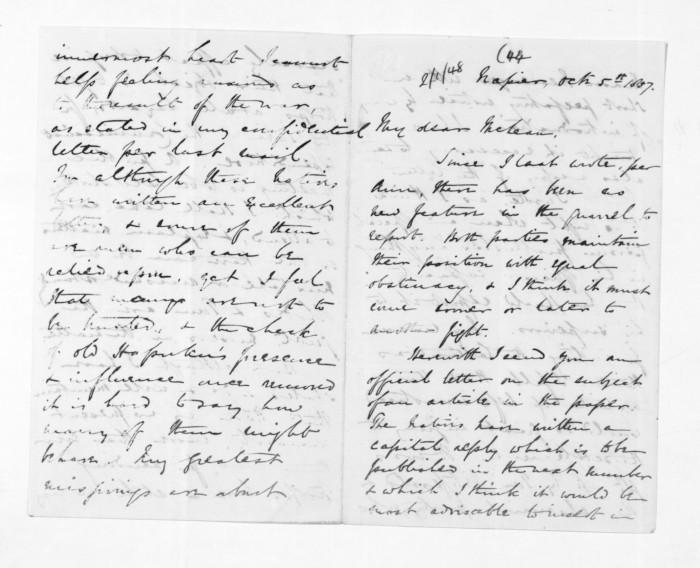 innermost heart I cannot
help feeling uneasy as
to the result of the war,
as stated in my confidential
letter per last mail.
For although these natives
have written an excellent
letter & some of them
are men who can be
relied upon, yet I feel
that many are not to
be trusted, & the check
of old Hapuku's presence
& influence once removed
it is hard to say how
many of them might
behave. My greatest
misgivings are about
(44
2/1/48
Napier, Octr 5th 1857.
My dear McLean,
Since I last wrote, per
Ann, there has been no
new feature in the quarrel to
report. Both parties maintain
their position with equal
obstinacy, & I think it must
come sooner or later to
another fight.
Herewith I send you an
official letter on the subject
of an article in the paper.
The natives have written a
capital reply which is to be
published in the next number
& which I think it would be
most advisable to insert in